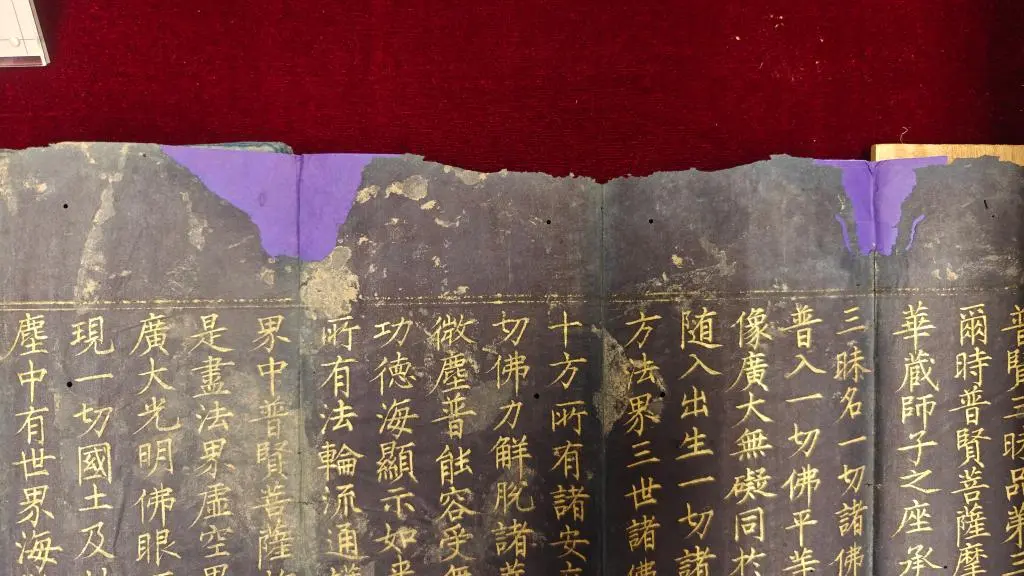 普賢三昧品第三
爾時普賢菩薩摩
華蔵師子之座承
三昧名一切諸佛
普入一切佛平等
像廣大無礙同於
随入出生一切諸
方法界三世諸佛
十方所有諸安立
切佛力解脱諸菩
微塵普能容受無
功德海顯示如來
所有法輪流通護
界中普賢菩薩
是盡法界虛空界
廣大光明佛眼
現一切國土及
塵中有世界海